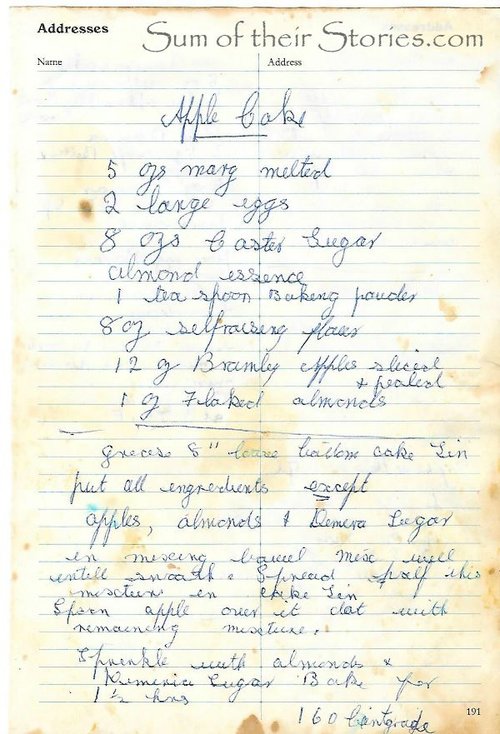 Addresses
Sum of their Stories.com
Name Address
Apple Cake
5 ozs marg melted
2 large eggs
8 ozs Caster Sugar
almond essence
1 tea spoon Baking powder
8 oz selfraising flour
12 oz Bramley apples sliced
& pealed
1 oz Flaked almonds
grease 8" loose bottom cake Tin
put all engredients except
apples, almonds & Demera Sugar
in mixing bowel mix well
untill smooth. Spread half this
mixture in cake Tin
Spoon apple over it dot with
remaining mixture.
Sprinkle with almonds &
Demeria Sugar Bake for
1 1/2 hrs
160 Centgrade
191